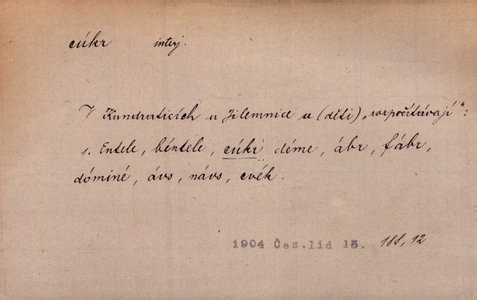 cúkr intj.
V Kundraticích u Jilemnice se (děti) „vepočítávají":
1. Entele, béntele, cúkr déme, ábr, fábr,
dóminé, ávs, návs, cvék.
1904 Čes.lid 13. 188,12